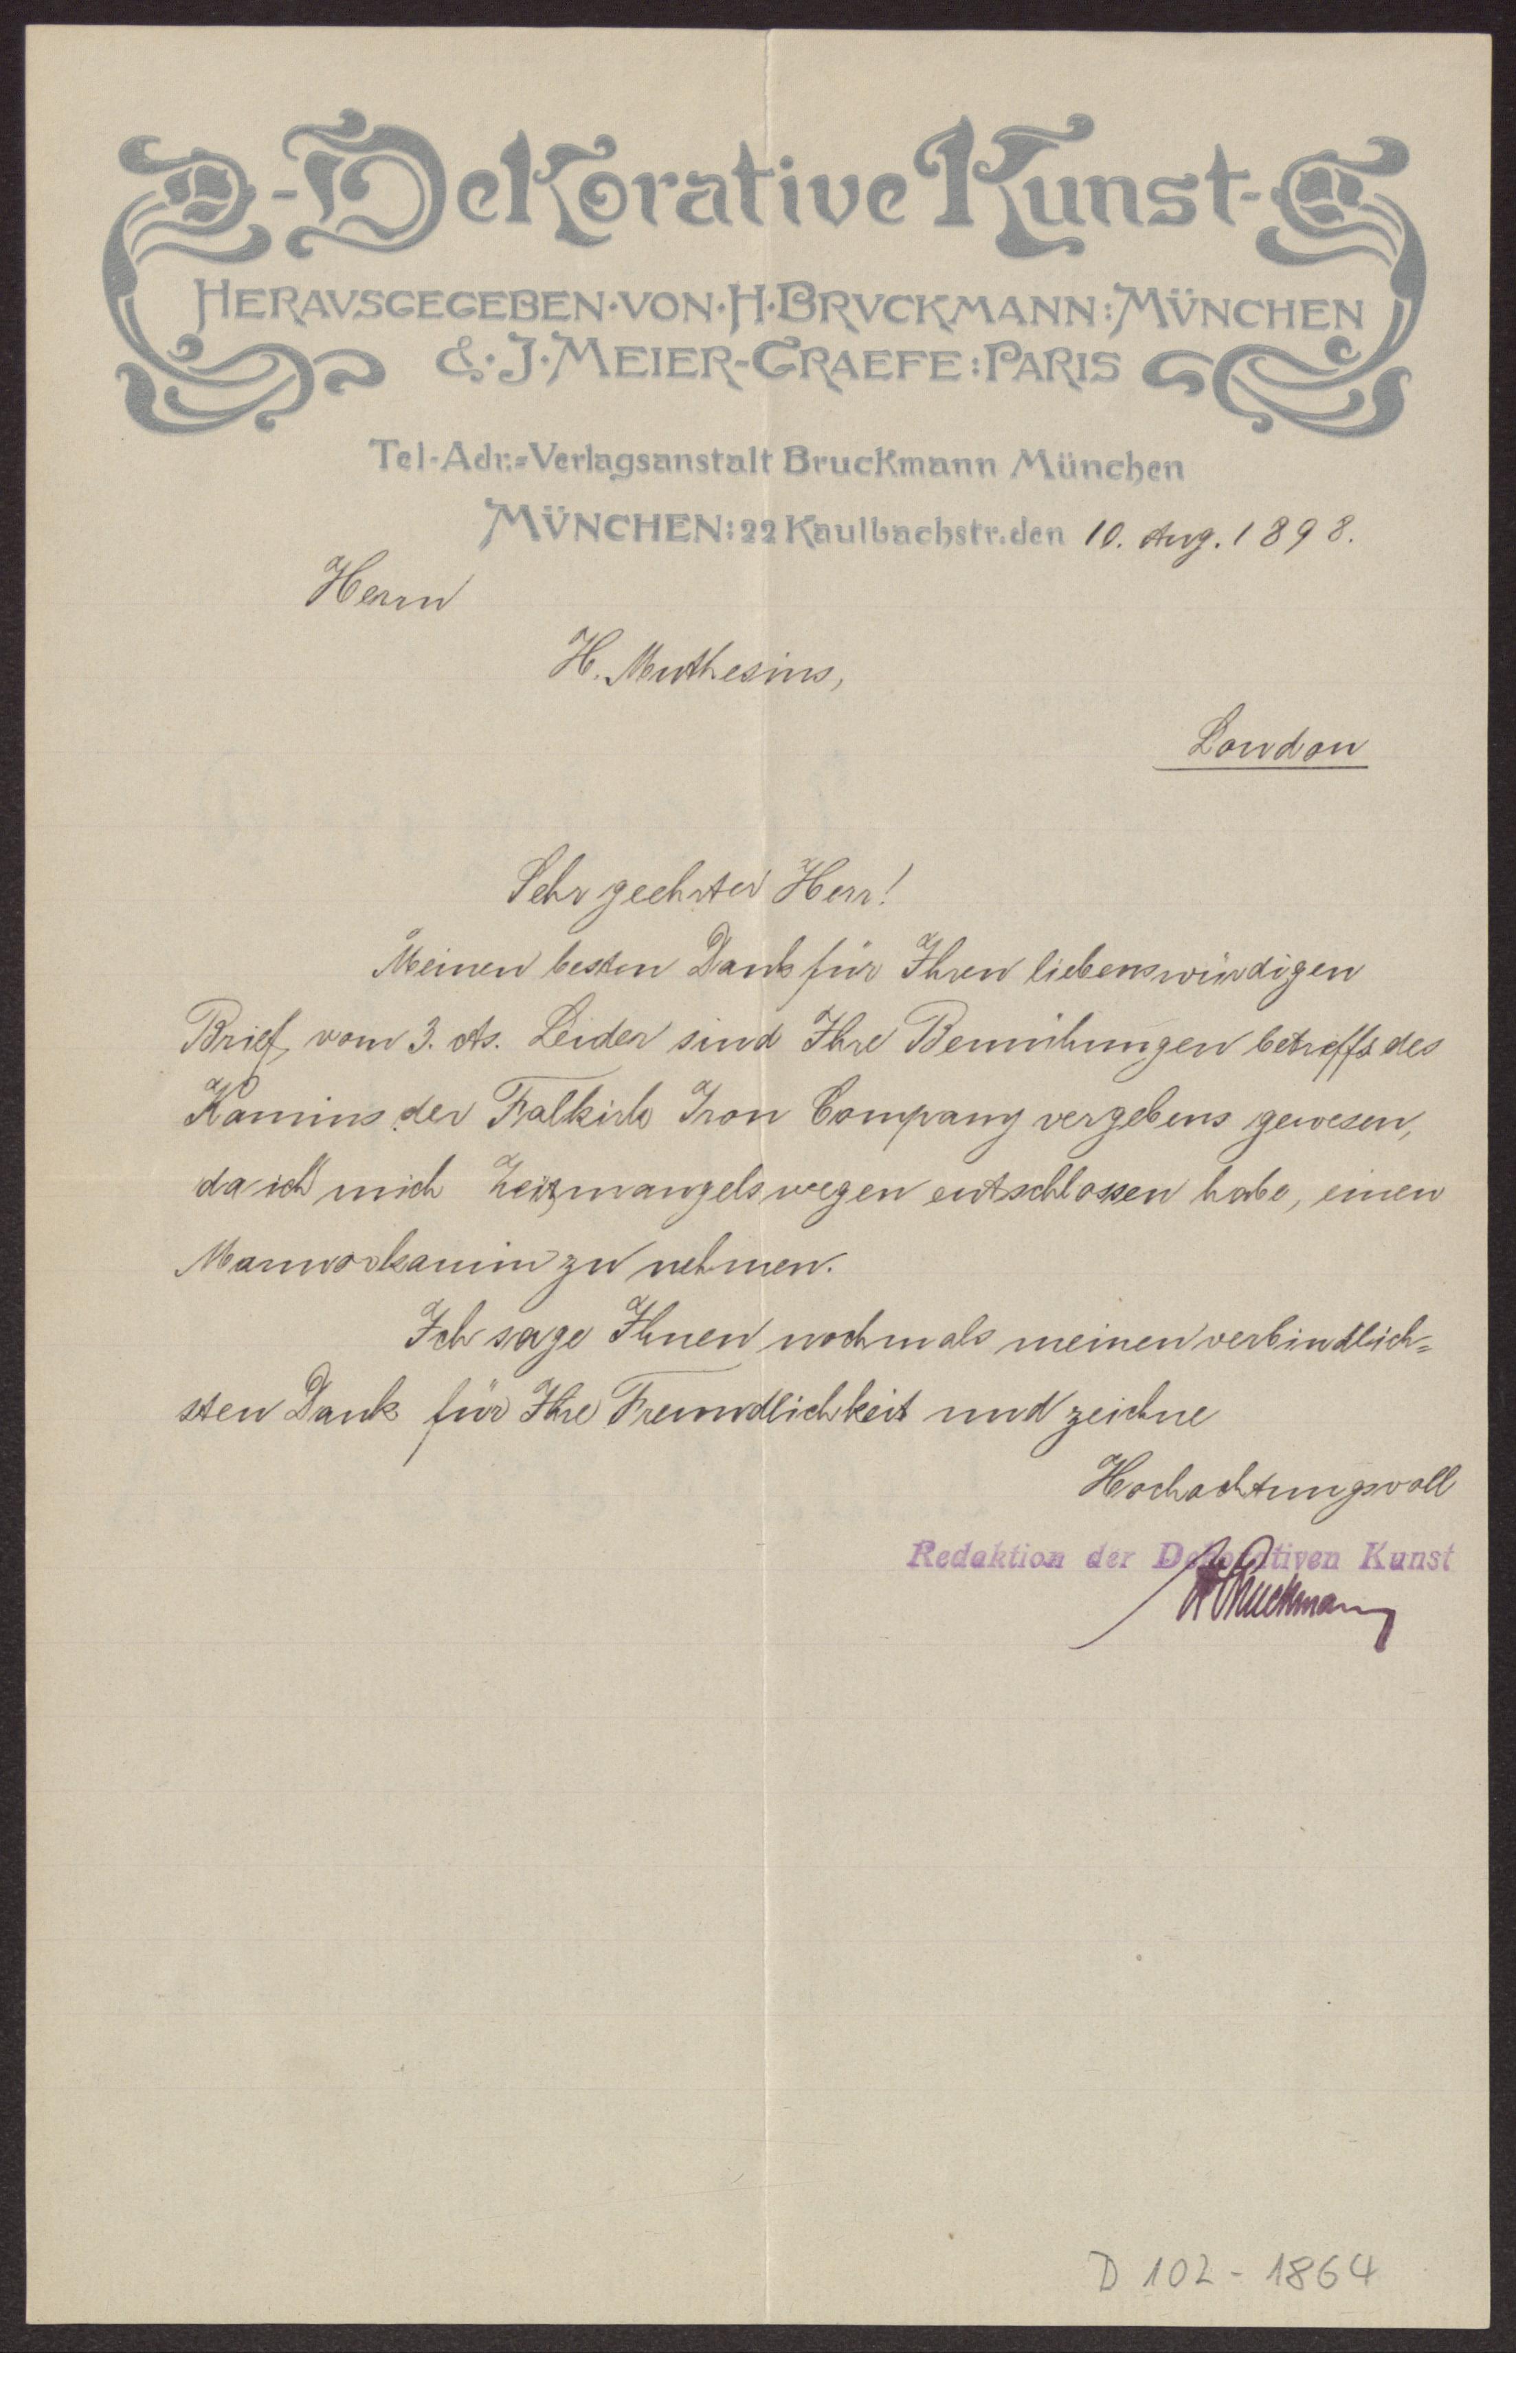 Dekorative Kunst
HERAVSGEGEBEN·VON·H·BRVCKMANN:MÜNCHEN
&·J·MEIER-GRAEFE:PARIS
Tel-Adr.=Verlagsanstalt Bruckmann München
MÜNCHEN:22 Kaulbachstr.den 10. Aug. 1898.
Herrn
H. Muthesius,
London
Sehr geehrter Herr!
Meinen besten Dank für Ihren liebenswürdigen
Brief vom 3. ds. Leider sind Ihre Bemühungen betreffs des
Kamins der Falkirk Iron Company vergebens gewesen,
da ich mich Zeitmangels wegen entschlossen habe, einen
Marmorkamin zu nehmen.
Ich sage Ihnen nochmals meinen verbindlich=
sten Dank für Ihre Freundlichkeit und zeichne
Hochachtungsvoll
Redaktion der Dekorativen Kunst
H Bruckmann
D 102 - 1864